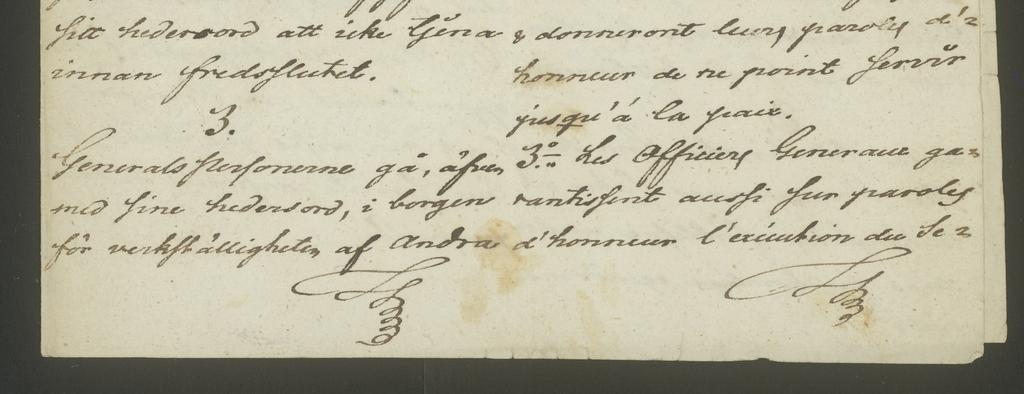 sitt hedersord att icke tjena
innan fredsslutet.
3.
Generalspersonerne gå, äfven
med sine hedersord, i borgen
för verkställigheten af Andra
& donneront leurs paroles d'=
honneur de ne point servir
jusqu'á la paix.
3.º Les Officiers Generaux ga=
rantissent aussi sur paroles
d'honneur l'exécution du Se=